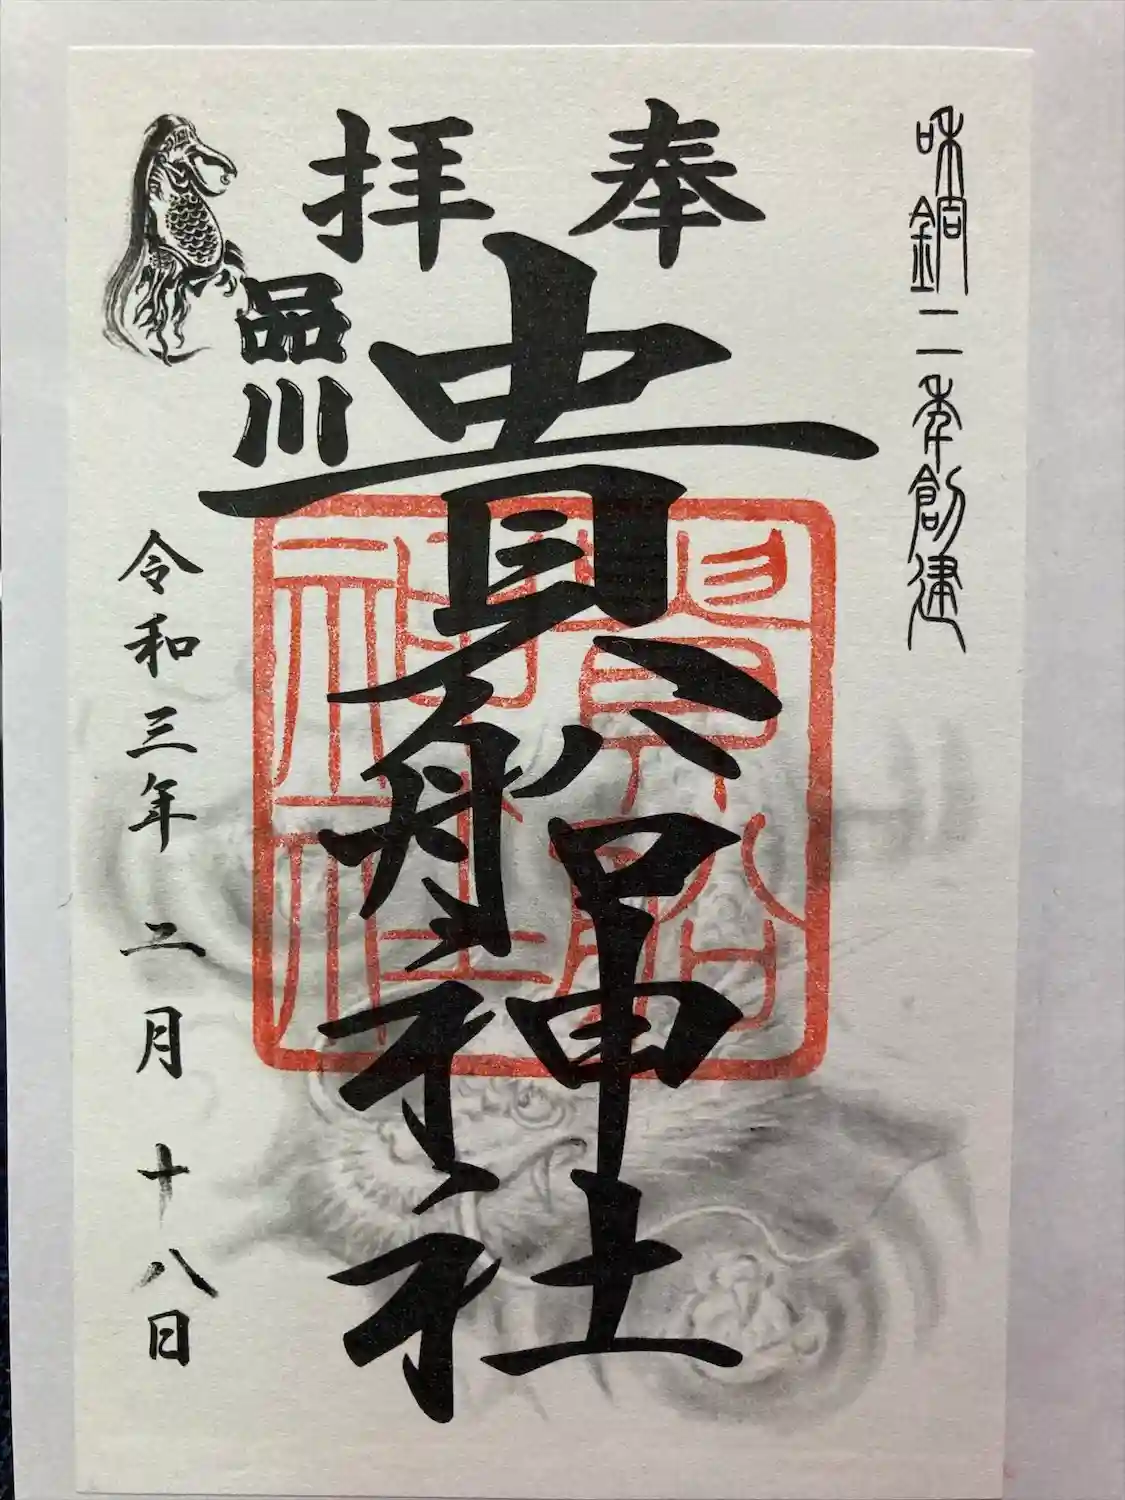 和銅二年創建
奉拝
品川
貴船神社
貴船神社
令和三年二月十八日